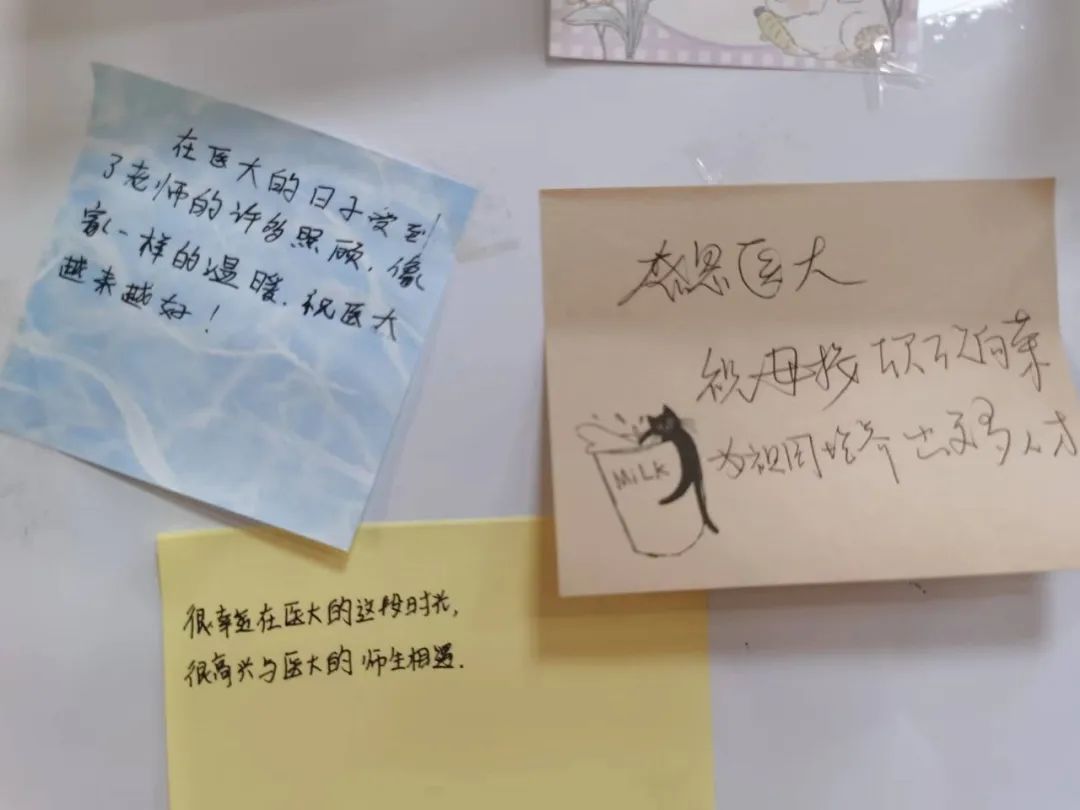 在医大的日子受到
了老师的许多照顾，像
家一样的温暖．祝医大
越来越好！
感恩医大
祝母校
为祖国培养出更多人才
MiLK
很幸运在医大的这段时光，
很高兴与医大的师生相遇．